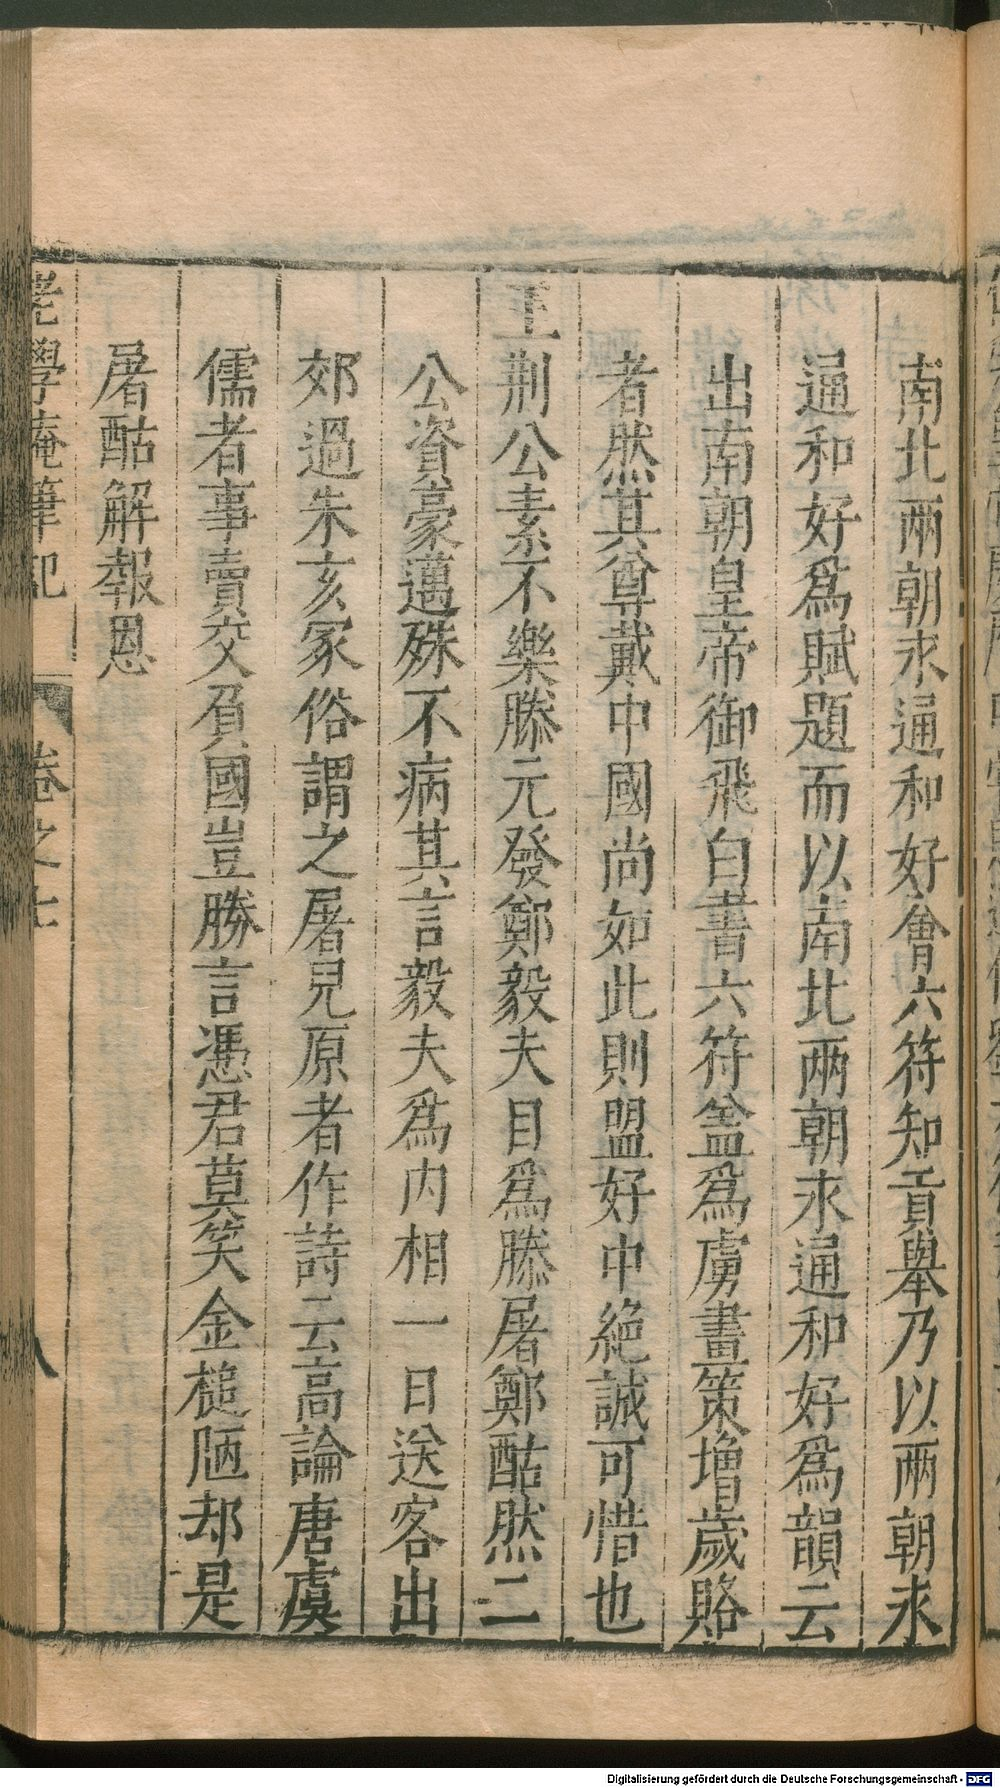 南北兩朝永通和好會六符知貢舉乃以兩朝永
通和好爲賦題而以南北兩朝永通和好爲韻云
出南朝皇帝御飛白書六符盖爲虜畫策增歲賂
者然其尊戴中國尚如此則盟好中絕誠可惜也
王荆公素不樂滕元發鄭毅夫目爲滕屠鄭酤然二
公資豪邁殊不病其言毅夫爲内相一日送客出
郊過朱亥冢俗謂之屠兒原者作詩云高論唐虞
儒者事賣交負國豈勝言憑君莫笑金槌陋却是
屠酤解報恩
老學庵筆記 卷之七 八
Digitalisierung gefördert durch die Deutsche Forschungsgemeinschaft - DFG